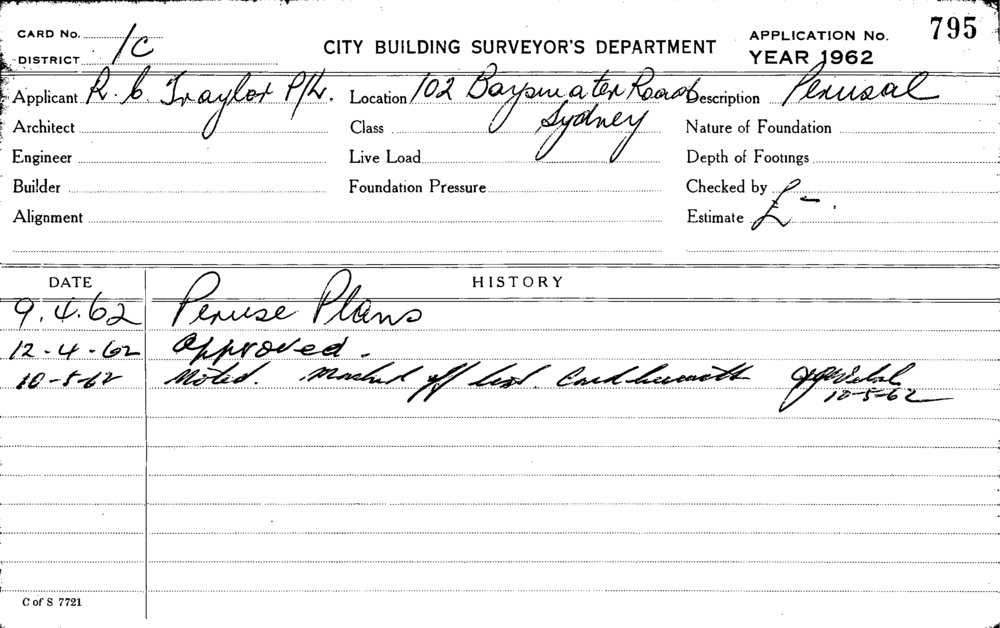 CARD No.
DISTRICT 1C
CITY BUILDING SURVEYOR'S DEPARTMENT
APPLICATION No. 795
YEAR 1962
Applicant R. C. Traylor P/L. Location 102 Bayswater Road Description Perusal
Architect Class Sydney Nature of Foundation
Engineer Live Load Depth of Footings
Builder Foundation Pressure Checked by
Alignment Estimate £ -.
DATE HISTORY
9.4.62 Peruse Plans
12-4-62 Approved -
10-5-62 Noted. Marked off list. Card herewith
10-5-62
C of S 7721